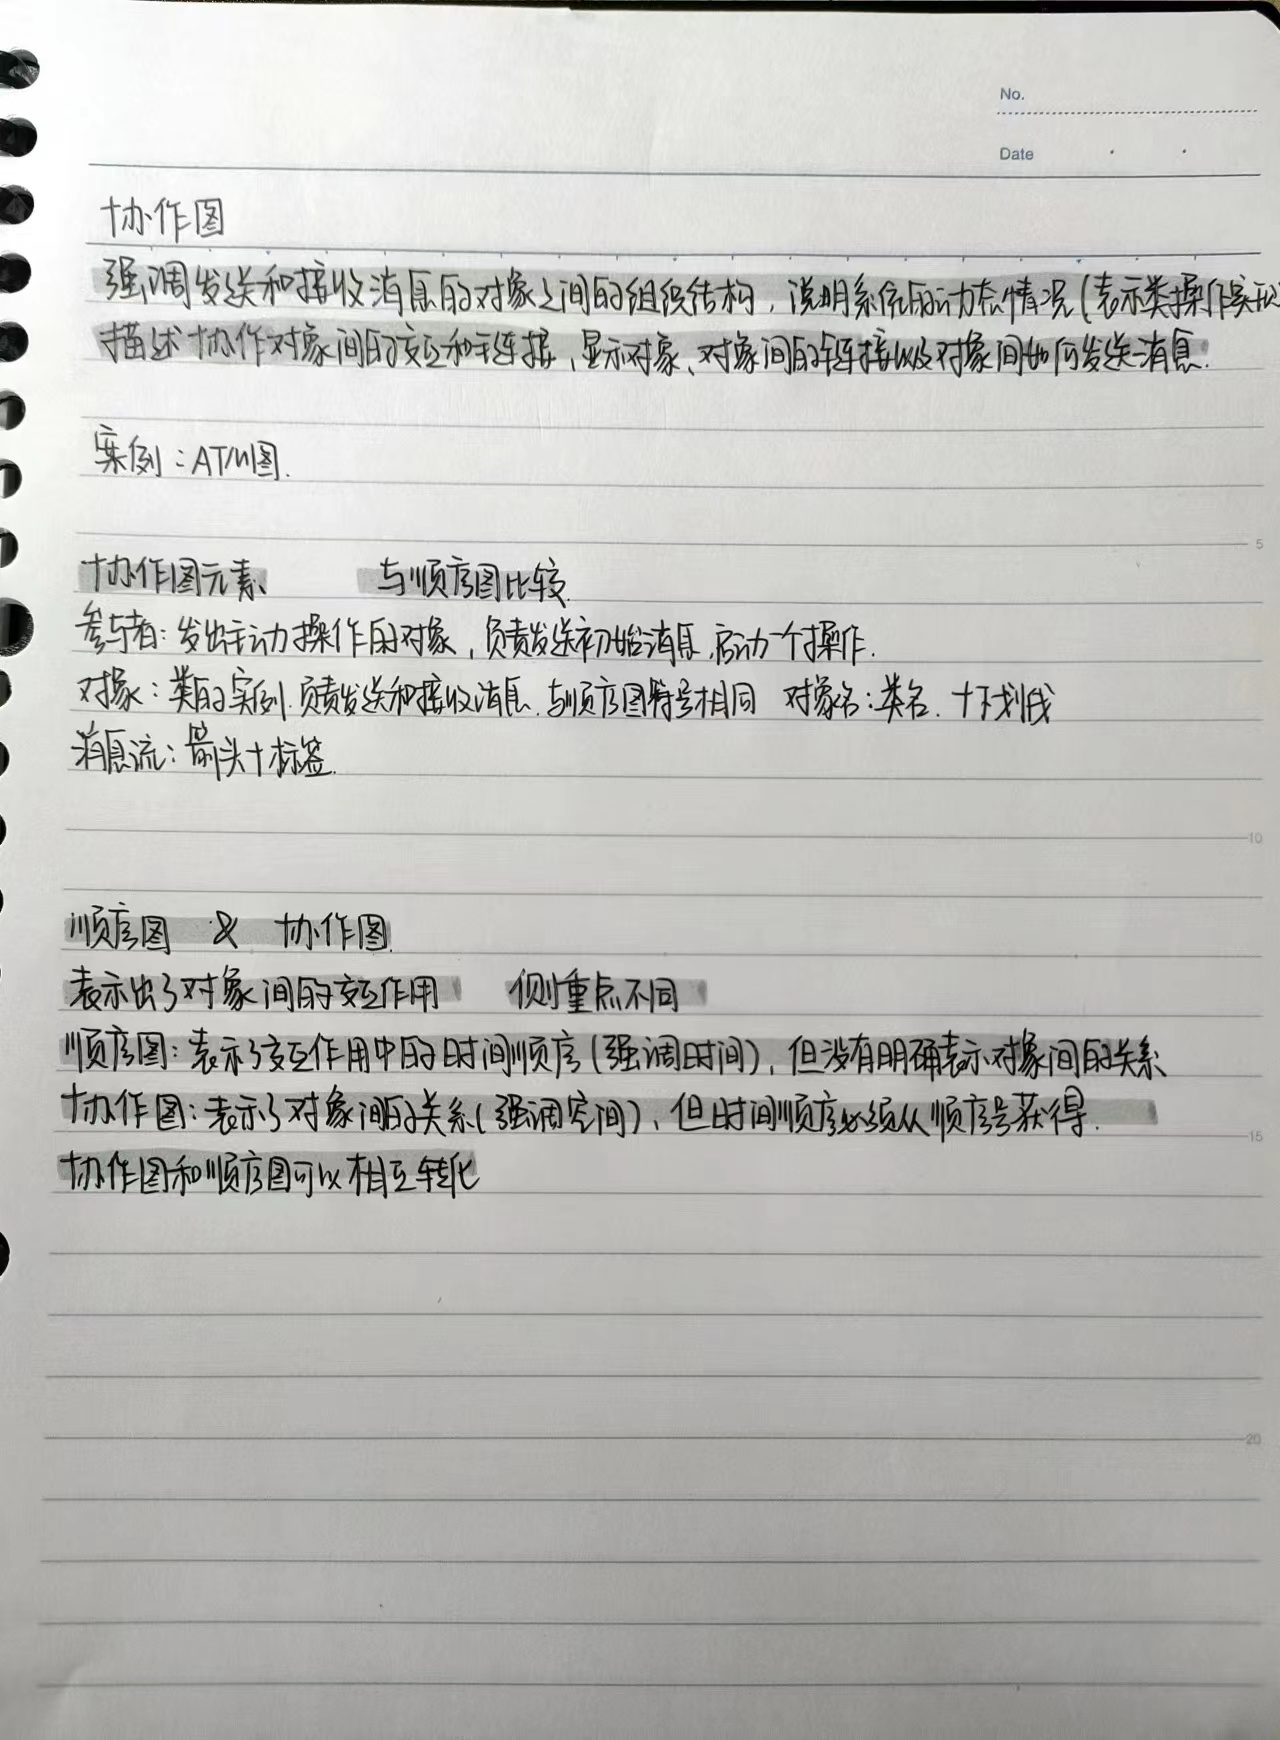 No.
Date
协作图
强调发送和接收消息的对象之间的组织结构，说明系统的动态情况(表示类操作实现
描述协作对象间的交互和链接，显示对象、对象间的链接以及对象间如何发送消息.
案例：ATM图.
5
协作图元素 与顺序图比较.
参与者：发出主动操作的对象，负责发送初始消息，启动一个操作.
对象：类的实例.负责发送和接收消息.与顺序图符号相同 对象名：类名. 十下划线
消息流：箭头十标签.
10
顺序图 & 协作图.
表示出了对象间的交互作用 侧重点不同
顺序图：表示了交互作用中的时间顺序(强调时间)，但没有明确表示对象间的关系
协作图：表示了对象间的关系(强调空间)，但时间顺序必须从顺序号获得.
15
协作图和顺序图可以相互转化
20